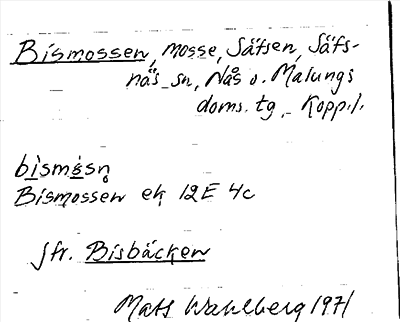 Bismossen, mosse, Säfsen, Säfs-
näs sn, Nås o. Malungs
doms. tg, Kopp. l.
bismåsn̥
Bismossen ek 12E 4c
Jfr. Bisbäcken
Mats Wahlberg 1971